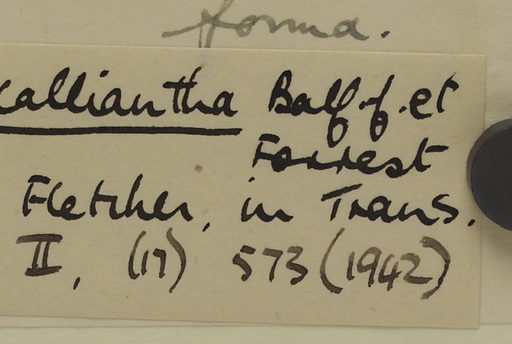 forma.
calliantha Balf.f. et
Forrest
Fletcher, in Trans.
II, (17) 573 (1942)